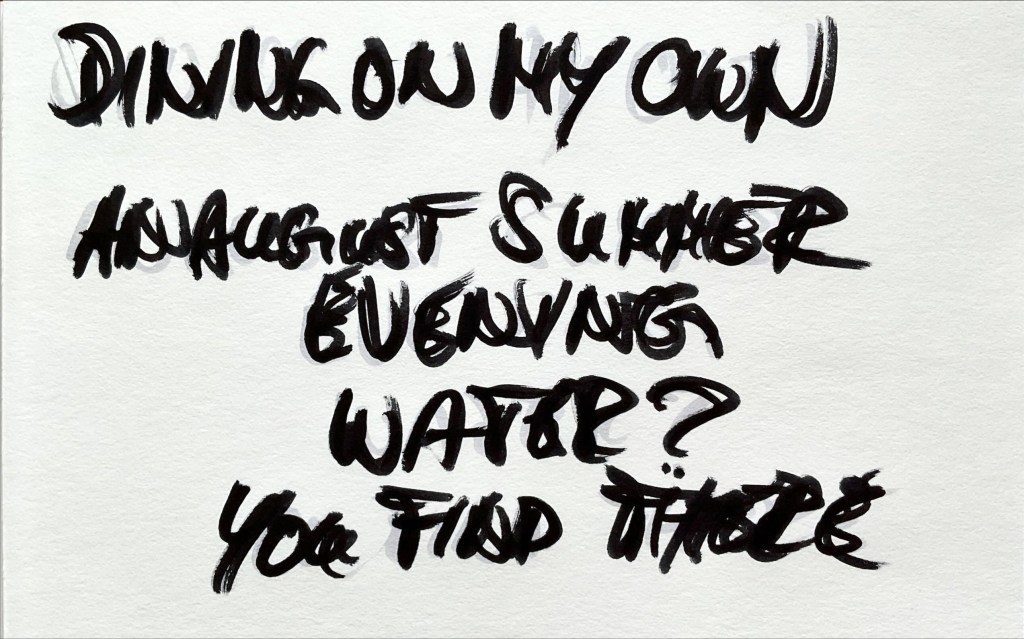 DINING ON MY OWN
AN AUGUST SUMMER
EVENING
WATER?
YOU FIND THERE